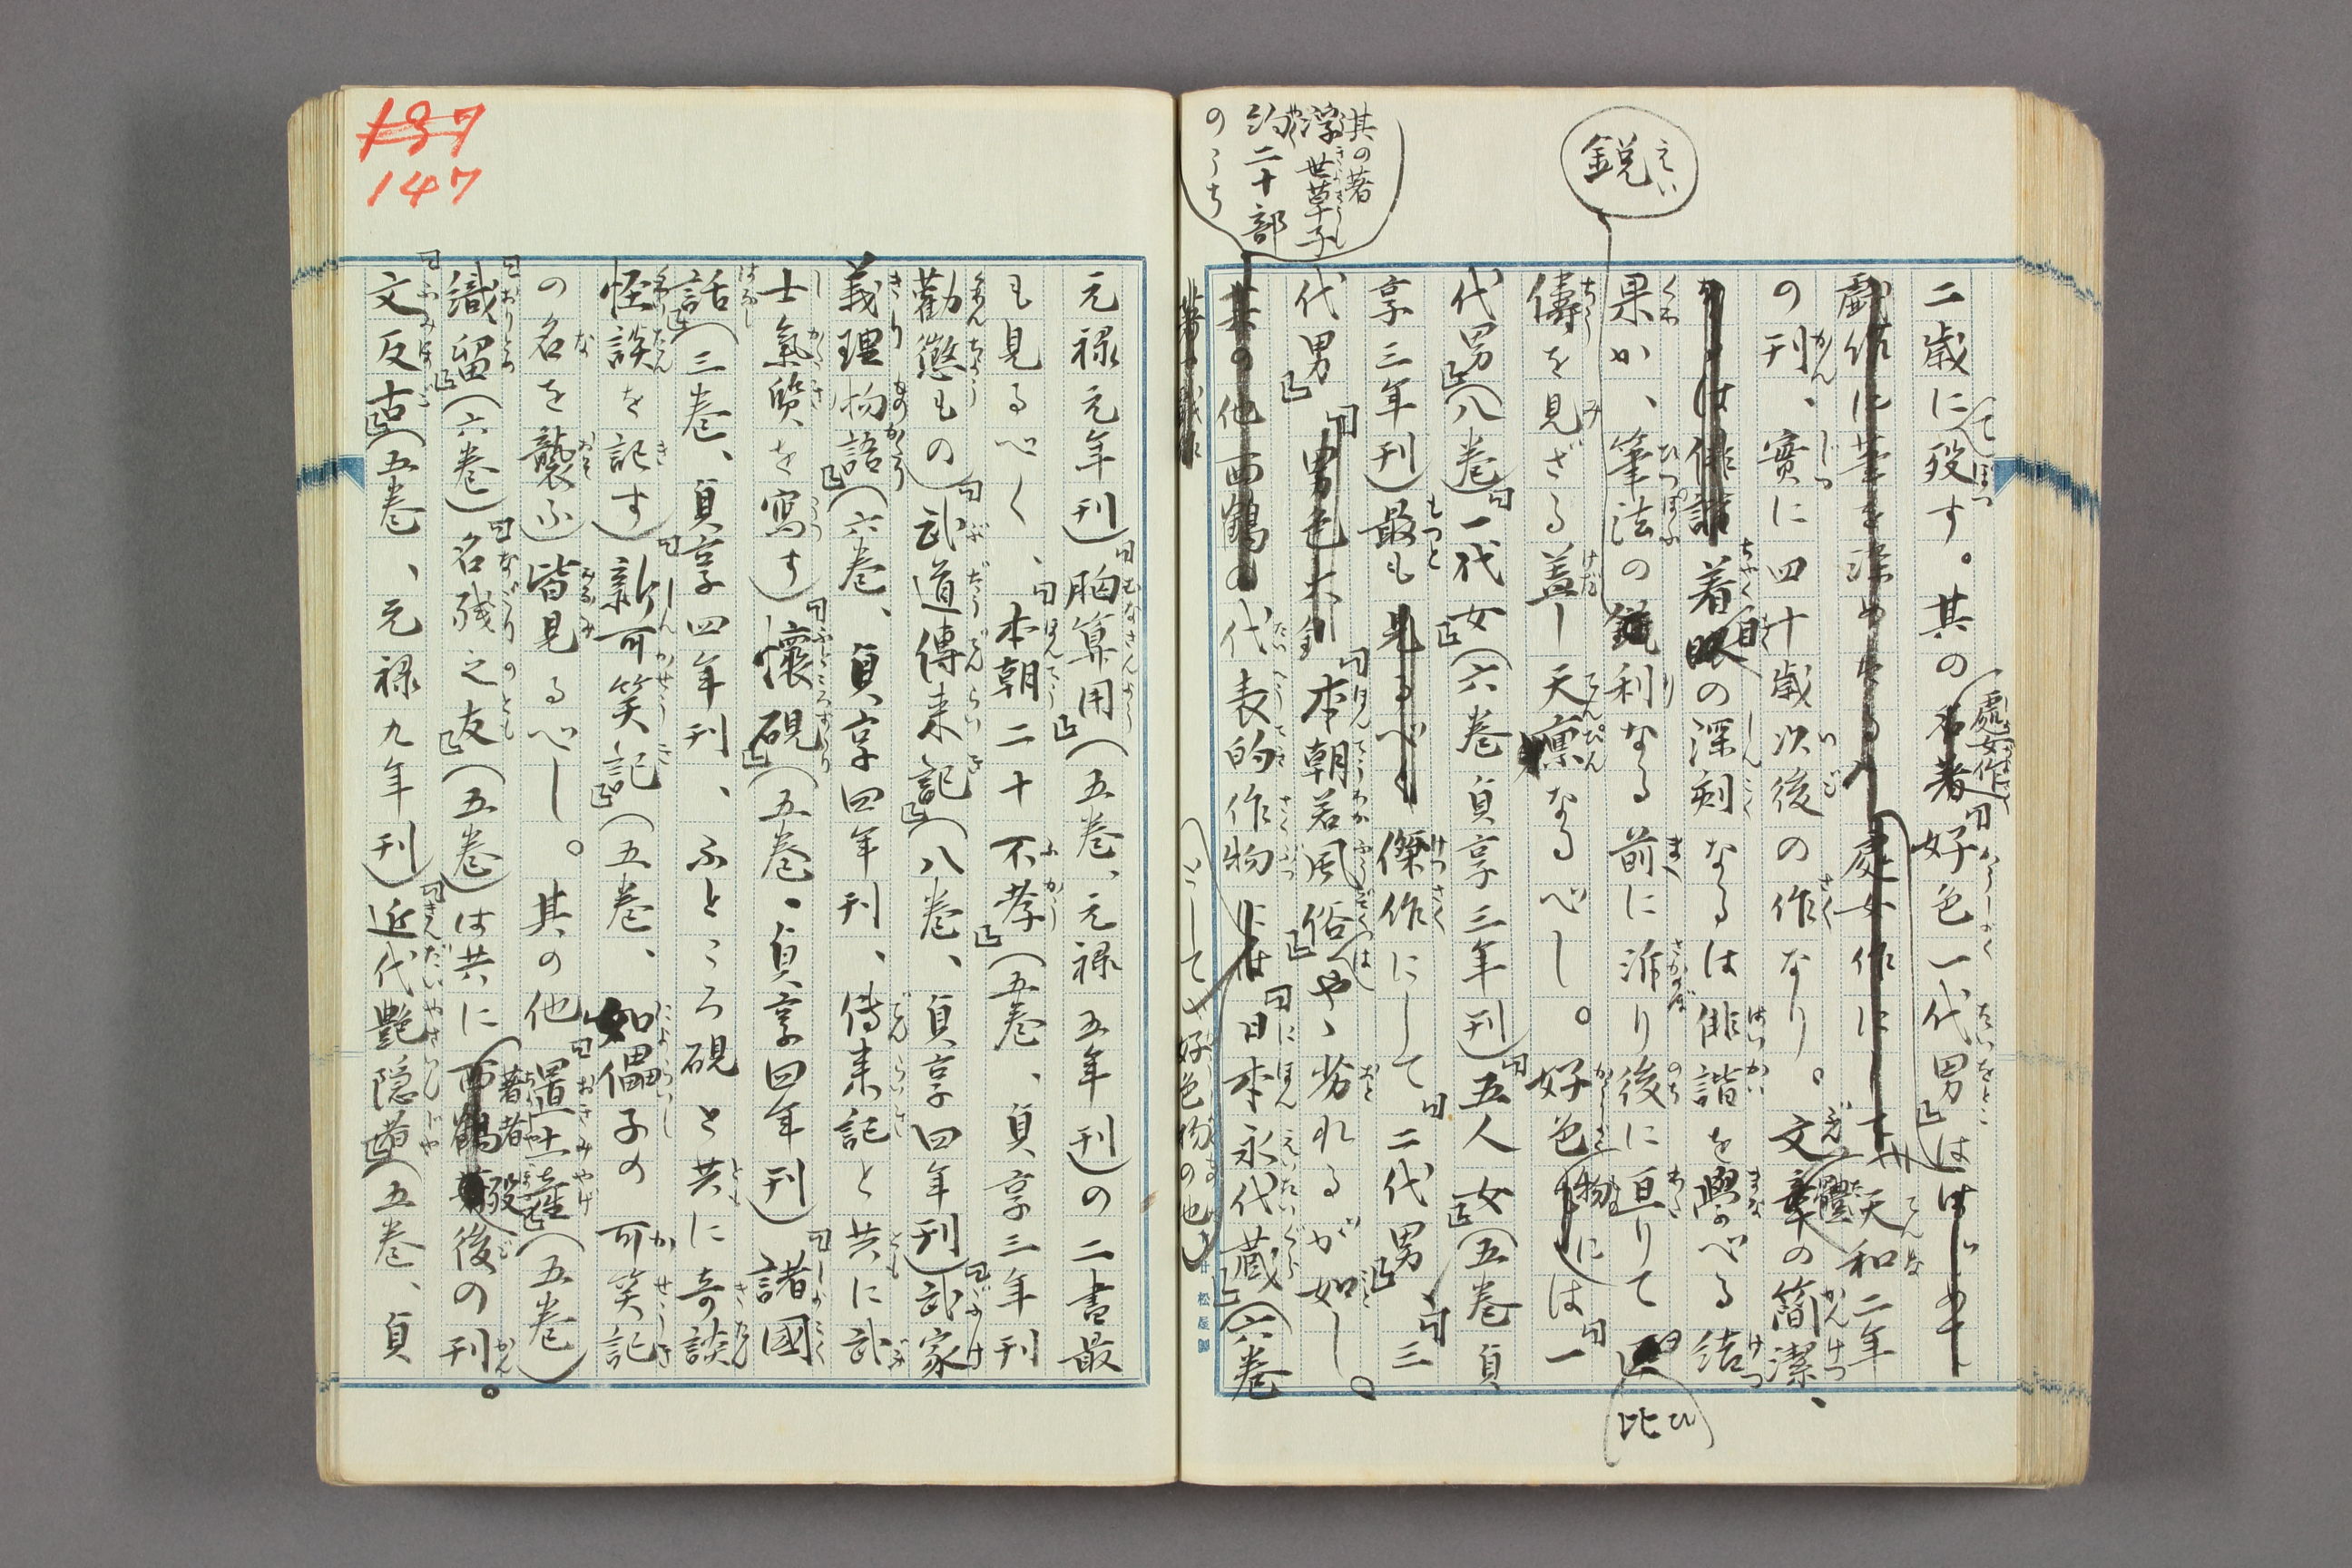 二歳にて歿す。其の處女作「好色一代男」は
天和二年
の刊、實に四十歳以後の作なり。文體の簡潔、
着目の深刻なるは俳諧を學べる結
果か、筆法の鋭利なる前に泝り後に亘りて比
儔を見ざる蓋し天禀なるべし。好色物には「一
代男」(八巻)「一代女」(六巻貞享三年刊)「五人女」(五巻貞
享三年刊)最も傑作にして「二代男」「三
代男」「本朝若風俗」はやゝ劣れるが如し。
其の著
浮世草子
約二十部
のうち
代表的作物として好色物の他
「日本永代蔵」(六巻
鋭
元禄元年刊)「胸算用」(五巻、元禄五年刊)の二書最
も見るべく、「本朝二十不孝」(五巻、貞享三年刊
勸懲もの)「武道傳来記」(八巻、貞享四年刊)「武家
義理物語」(六巻、貞享四年刊、傳来記と共に武
士氣質を寫す)「懷硯」(五巻、貞享四年刊)「諸國
話」(三巻、貞享四年刊、ふところ硯と共に奇談
怪談を記す)「新可笑記」(五巻、如儡子の可笑記
の名を襲ふ)皆見るべし。其の他「置土産」(五巻)
「織留」(六巻)「名残之友」(五巻)は共に著者歿後の刊。
「文反古」(五巻、元禄九年刊)「近代艶隠者」(五巻、貞
137
147